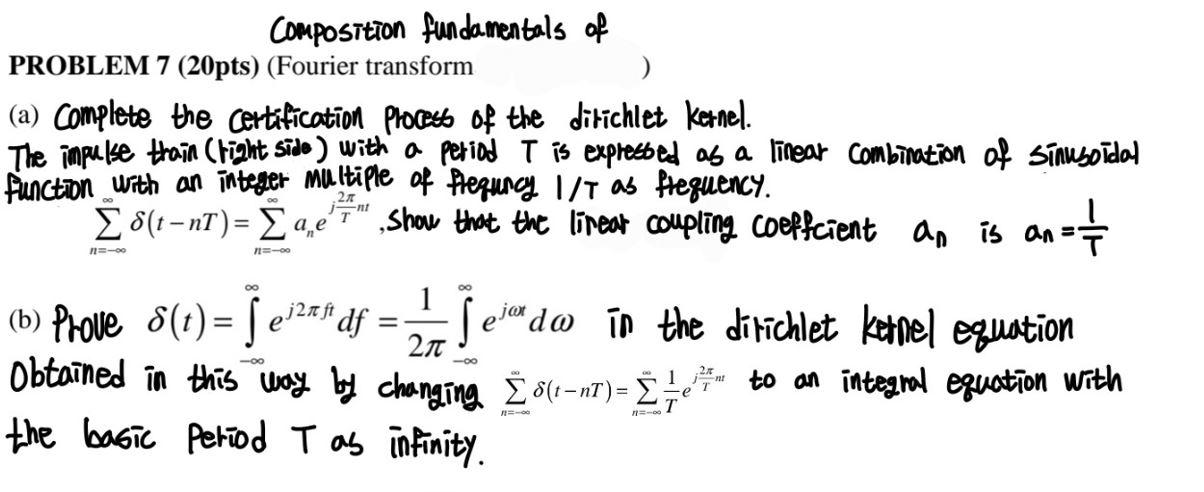 Composition fundamentals of
PROBLEM 7 (20pts) (Fourier transform )
(a) Complete the certification process of the dirichlet kernel.
The impulse train (right side) with a period T is expressed as a linear combination of sinusoidal
function with an integer multiple of frequncy 1/T as frequency.
∑_{n=-∞}^{∞} δ(t-nT) = ∑_{n=-∞}^{∞} a_n e^{j\frac{2π}{T}nt} , Show that the linear coupling coeffcient a_n is a_n = \frac{1}{T}
(b) Prove δ(t) = ∫_{-∞}^{∞} e^{j2πft} df = \frac{1}{2π} ∫_{-∞}^{∞} e^{jωt} dω in the dirichlet kernel equation
Obtained in this way by changing ∑_{n=-∞}^{∞} δ(t-nT) = ∑_{n=-∞}^{∞} \frac{1}{T} e^{j\frac{2π}{T}nt} to an integral equation with
the basic period T as infinity.